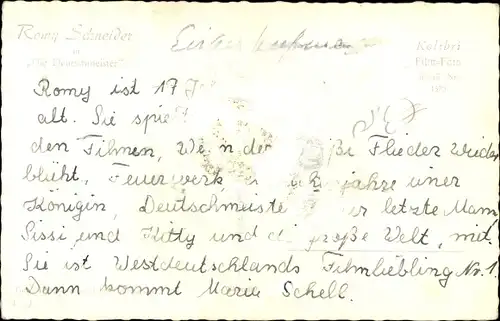 Romy Schneider
in
"Die Deutschmeister"
Kolibri
Film-Foto
Romy ist 17 J
alt. Sie spie
den Filmen, We n de ße Flieder wieder
blüht, Feuerwerk, jahre einer
Königin, Deutschmeiste r letzte Mann,
Sissi und Kitty und di große Welt, mit.
Sie ist Westdeutschlands Filmliebling Nr. 1
Dann kommt Maria Schell.